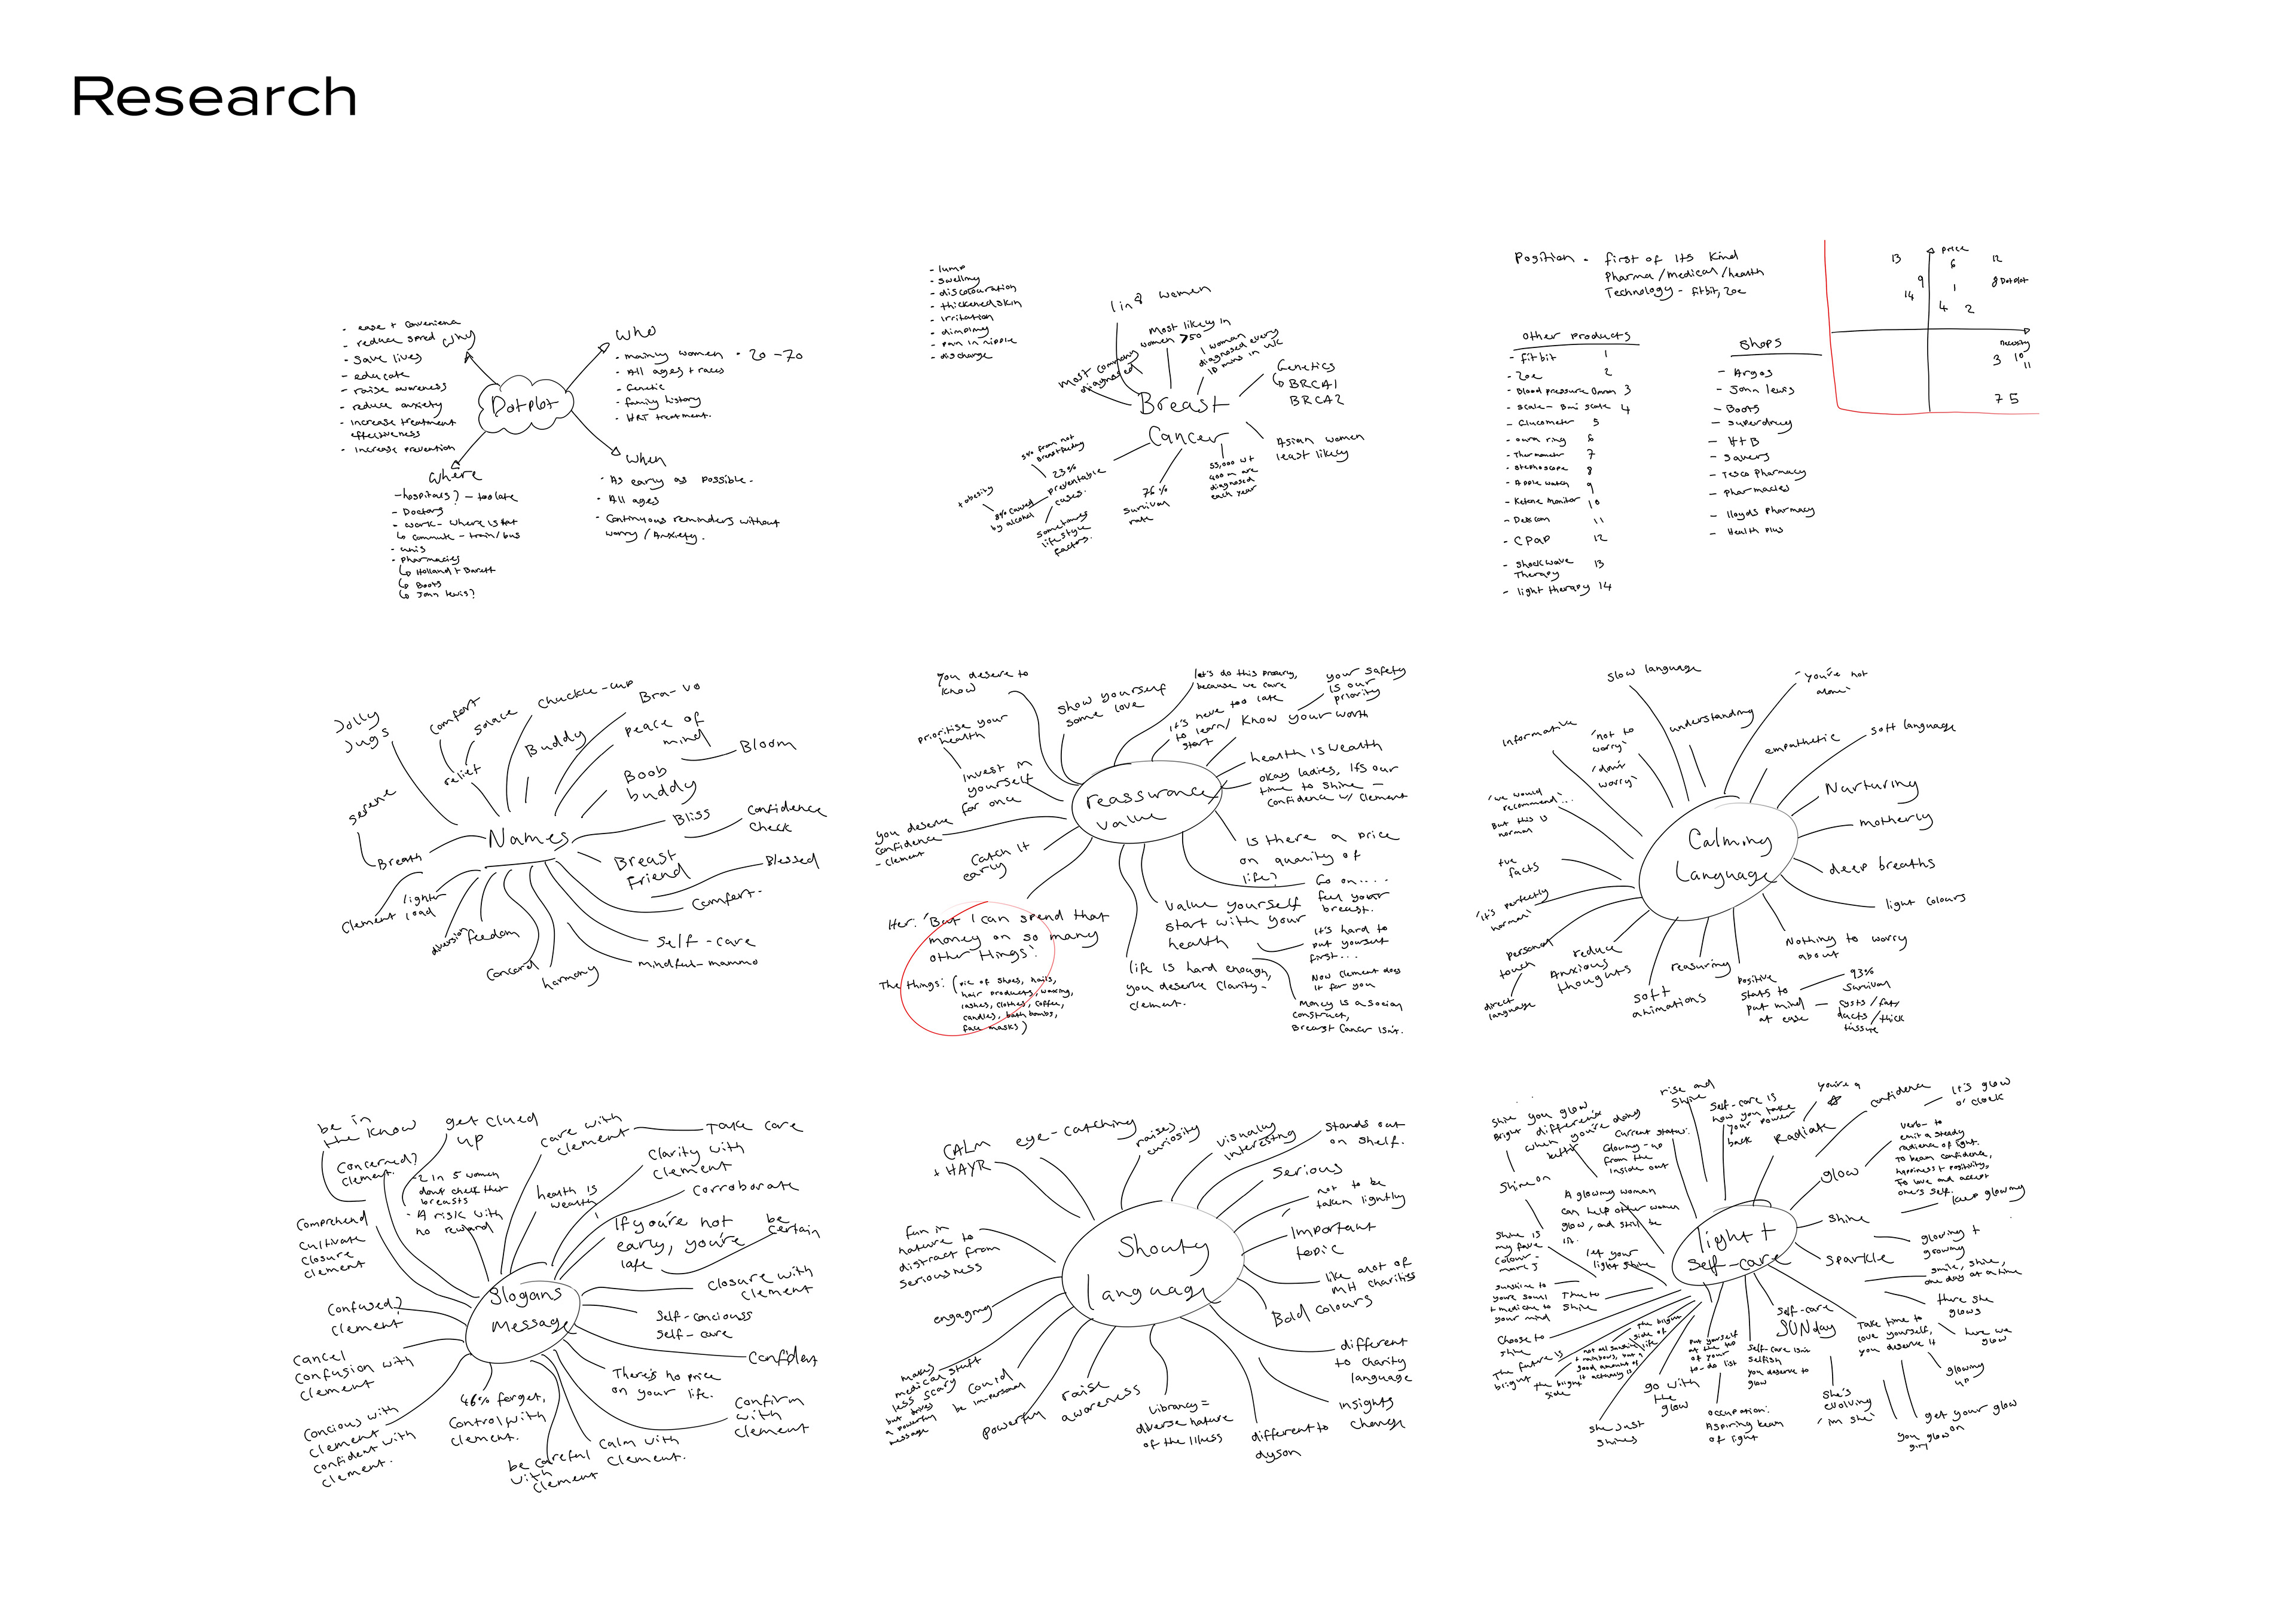 Research
Dotplot
Why
- ease + convenience
- reduce spread
- save lives
- educate
- raise awareness
- reduce anxiety
- increase treatment
effectiveness
- increase prevention
Who
- mainly women - 20 -70
- All ages + races
- Genetic
- family history
- HRT treatment.
Where
- hospitals? - too late
- Doctors
- work - where is that
↳ commute - train/bus
- unis
- pharmacies
↳ Holland + Barett
↳ Boots
↳ John lewis?
When
- As early as possible.
- All ages
- Continuous reminders without
worry / Anxiety.
- lump
- swelling
- discolouration
- thickened skin
- irritation
- dimpling
- pain in nipple
- discharge
Breast
Cancer
1 in 8 women
Most commonly
diagnosed
Most likely in
women >50
1 woman
diagnosed every
10 mins in UK
Genetics
↳ BRCA1
BRCA2
Asian women
least likely
55,000 w +
400 m are
diagnosed
each year
76%
Survival
rate
23%
preventable
cases.
5% from not
Breastfeeding
8% caused
by alcohol
+ obesity
sometimes
lifestyle
factors.
Position - first of its kind
Pharma/medical/health
Technology - fitbit, Zoe
Other products
- fitbit 1
- Zoe 2
- Blood pressure Omron 3
- Scale - Bmi scale 4
- Glucometer 5
- oura ring 6
- Thermometer 7
- stethoscope 8
- Apple watch 9
- Ketone monitor 10
- 11
- CPAP 12
- Shockwave 13
Therapy
- light therapy 14
Shops
- Argos
- John lewis
- Boots
- Superdrug
- H+B
- Savers
- Tesco Pharmacy
- Pharmacies
- lloyds Pharmacy
- Health Plus
Price
13 6 12
9 1 8 Dotplot
14 4 2
necessity
3 10 11
7 5
Names
Jolly
Jugs
Comfort
solace
relief
chuckle-cup
Buddy
Bra-vo
Peace of
mind
Bloom
Boob
buddy
Bliss
Confidence
check
Breast
Friend
Blessed
Comfort-
Self-care
mindful-mammo
harmony
Concord
freedom
lighter
load
Clement
Breath
serene
reassurance/
value
You deserve to
know
show yourself
some love
let's do this properly,
because we care
your safety
is our
priority
it's never too late
to learn/
start
Know your worth
prioritise your
health
Invest in
yourself
for once
health is wealth
okay ladies, it's our
time to shine -
Confidence w/ Clement
you deserve
confidence
- clement
Catch it
early
Is there a price
on quality of
life?
Go on....
feel your
breast.
Value yourself
start with your
health
It's hard to
put yourself
first...
Now Clement does
it for you
life is hard enough,
you deserve clarity -
clement.
Money is a social
construct,
Breast Cancer isn't.
Her: 'But I can spend that
money on so many
other things'.
The things: (pic of shoes, nails,
hair products, waxing,
lashes, clothes, coffee,
candles, bath bombs,
face masks)
Calming
Language
slow language
'you're not
alone'
understanding
Informative
'not to
worry'
'don't
worry'
empathetic
soft language
Nurturing
motherly
deep breaths
light colours
'we would
recommend'...
But this is
normal
+ve
facts
'it's perfectly
normal'
personal
touch
direct
language
reduce
Anxious
thoughts
soft
animations
reasuring
Positive
stats to
put mind
at ease
93%
Survival
cysts / fatty
ducts / thick
tissue
Nothing to worry
about
Slogans
message
be in
the know
get clued
up
care with
clement
Take care
Concerned?
Clement.
- 2 in 5 women
dont check their
breasts
- A risk with
no reward
health is
wealth
Clarity with
clement
corroborate
If you're not
early, you're
late
be
certain
Comprehend
cultivate
closure
clement
Confused?
Clement
closure with
clement
Self-conciouss
Self-care
Confident
Cancel
confusion with
clement
There's no price
on your life.
Confirm
with
clement
Concious with
clement
confident with
clement.
46% forget,
control with
clement.
be careful
with
clement
Calm with
clement.
Shouty
language
CALM
+ HAYR
eye-catching
raises
curiosity
visually
interesting
Stands out
on shelf.
Serious
not to be
taken lightly
Important
topic
like alot of
MH charities
Bold colours
different
to charity
language
insights
change
different to
dyson
vibrancy =
diverse nature
of the illness
raise
awareness
powerful
Could
be impersonal
makes
medical stuff
less scary
but drives
a powerful
message
engaging
fun in
nature to
distract from
seriousness
light +
self-care
rise and
shine
Self-care is
how you take
your power
back
you're a
☆
confidence
It's glow
o'clock
Shine you glow
Bright difference
when you're doing
better
Current status:
Glowing-up
from the
inside out
Radiate
glow
Verb- to
emit a steady
radience of light.
To beam confidence,
happiness + positivity,
To love and accept
one's self.
keep glowing
Shine on
A glowing woman
can help other women
glow, and still be
lit.
let your
light shine
Shine
sparkle
glowing +
growing
smile, shine,
one day at a time
Shine is
my fave
colour -
marc J
sunshine to
your soul
+ medicine to
your mind
Time to
shine
Choose to
shine
The future is
bright
the bright
side
the bright
side of
life
not all sunshine
+ rainbows, but a
good amount of
it actually is
she just
shines
go with
the
glow
Put yourself
at the top
of your
to-do list
occupation:
Aspiring beam
of light
Self-care isn't
selfish
you deserve to
glow
Self-care
SUNday
She's
evolving
'im she'
Take time to
love yourself,
you deserve it
there she
glows
here we
glow
glowing
up
get your glow
on
you glow
girl